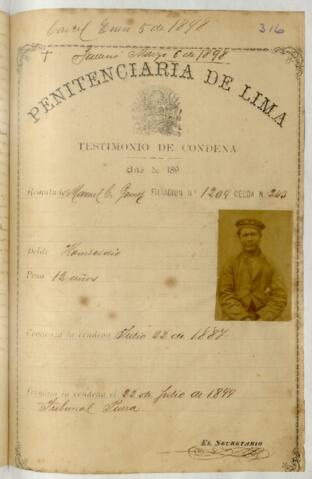 Carcel Enero 5 de 1898
316
Marzo 6 de 1898
PENITENCIARIA DE LIMA
TESTIMONIO DE CONDENA
Año de 189
Rematado Manuel C. FILIACION N.º 1204 CELDA N.º 203
Delito Homicidio
Pena 12 años
Comienza la condena Julio 22 de 1887
Termina la condena el 22 de Julio de 1899
Tribunal Piura
EL SECRETARIO